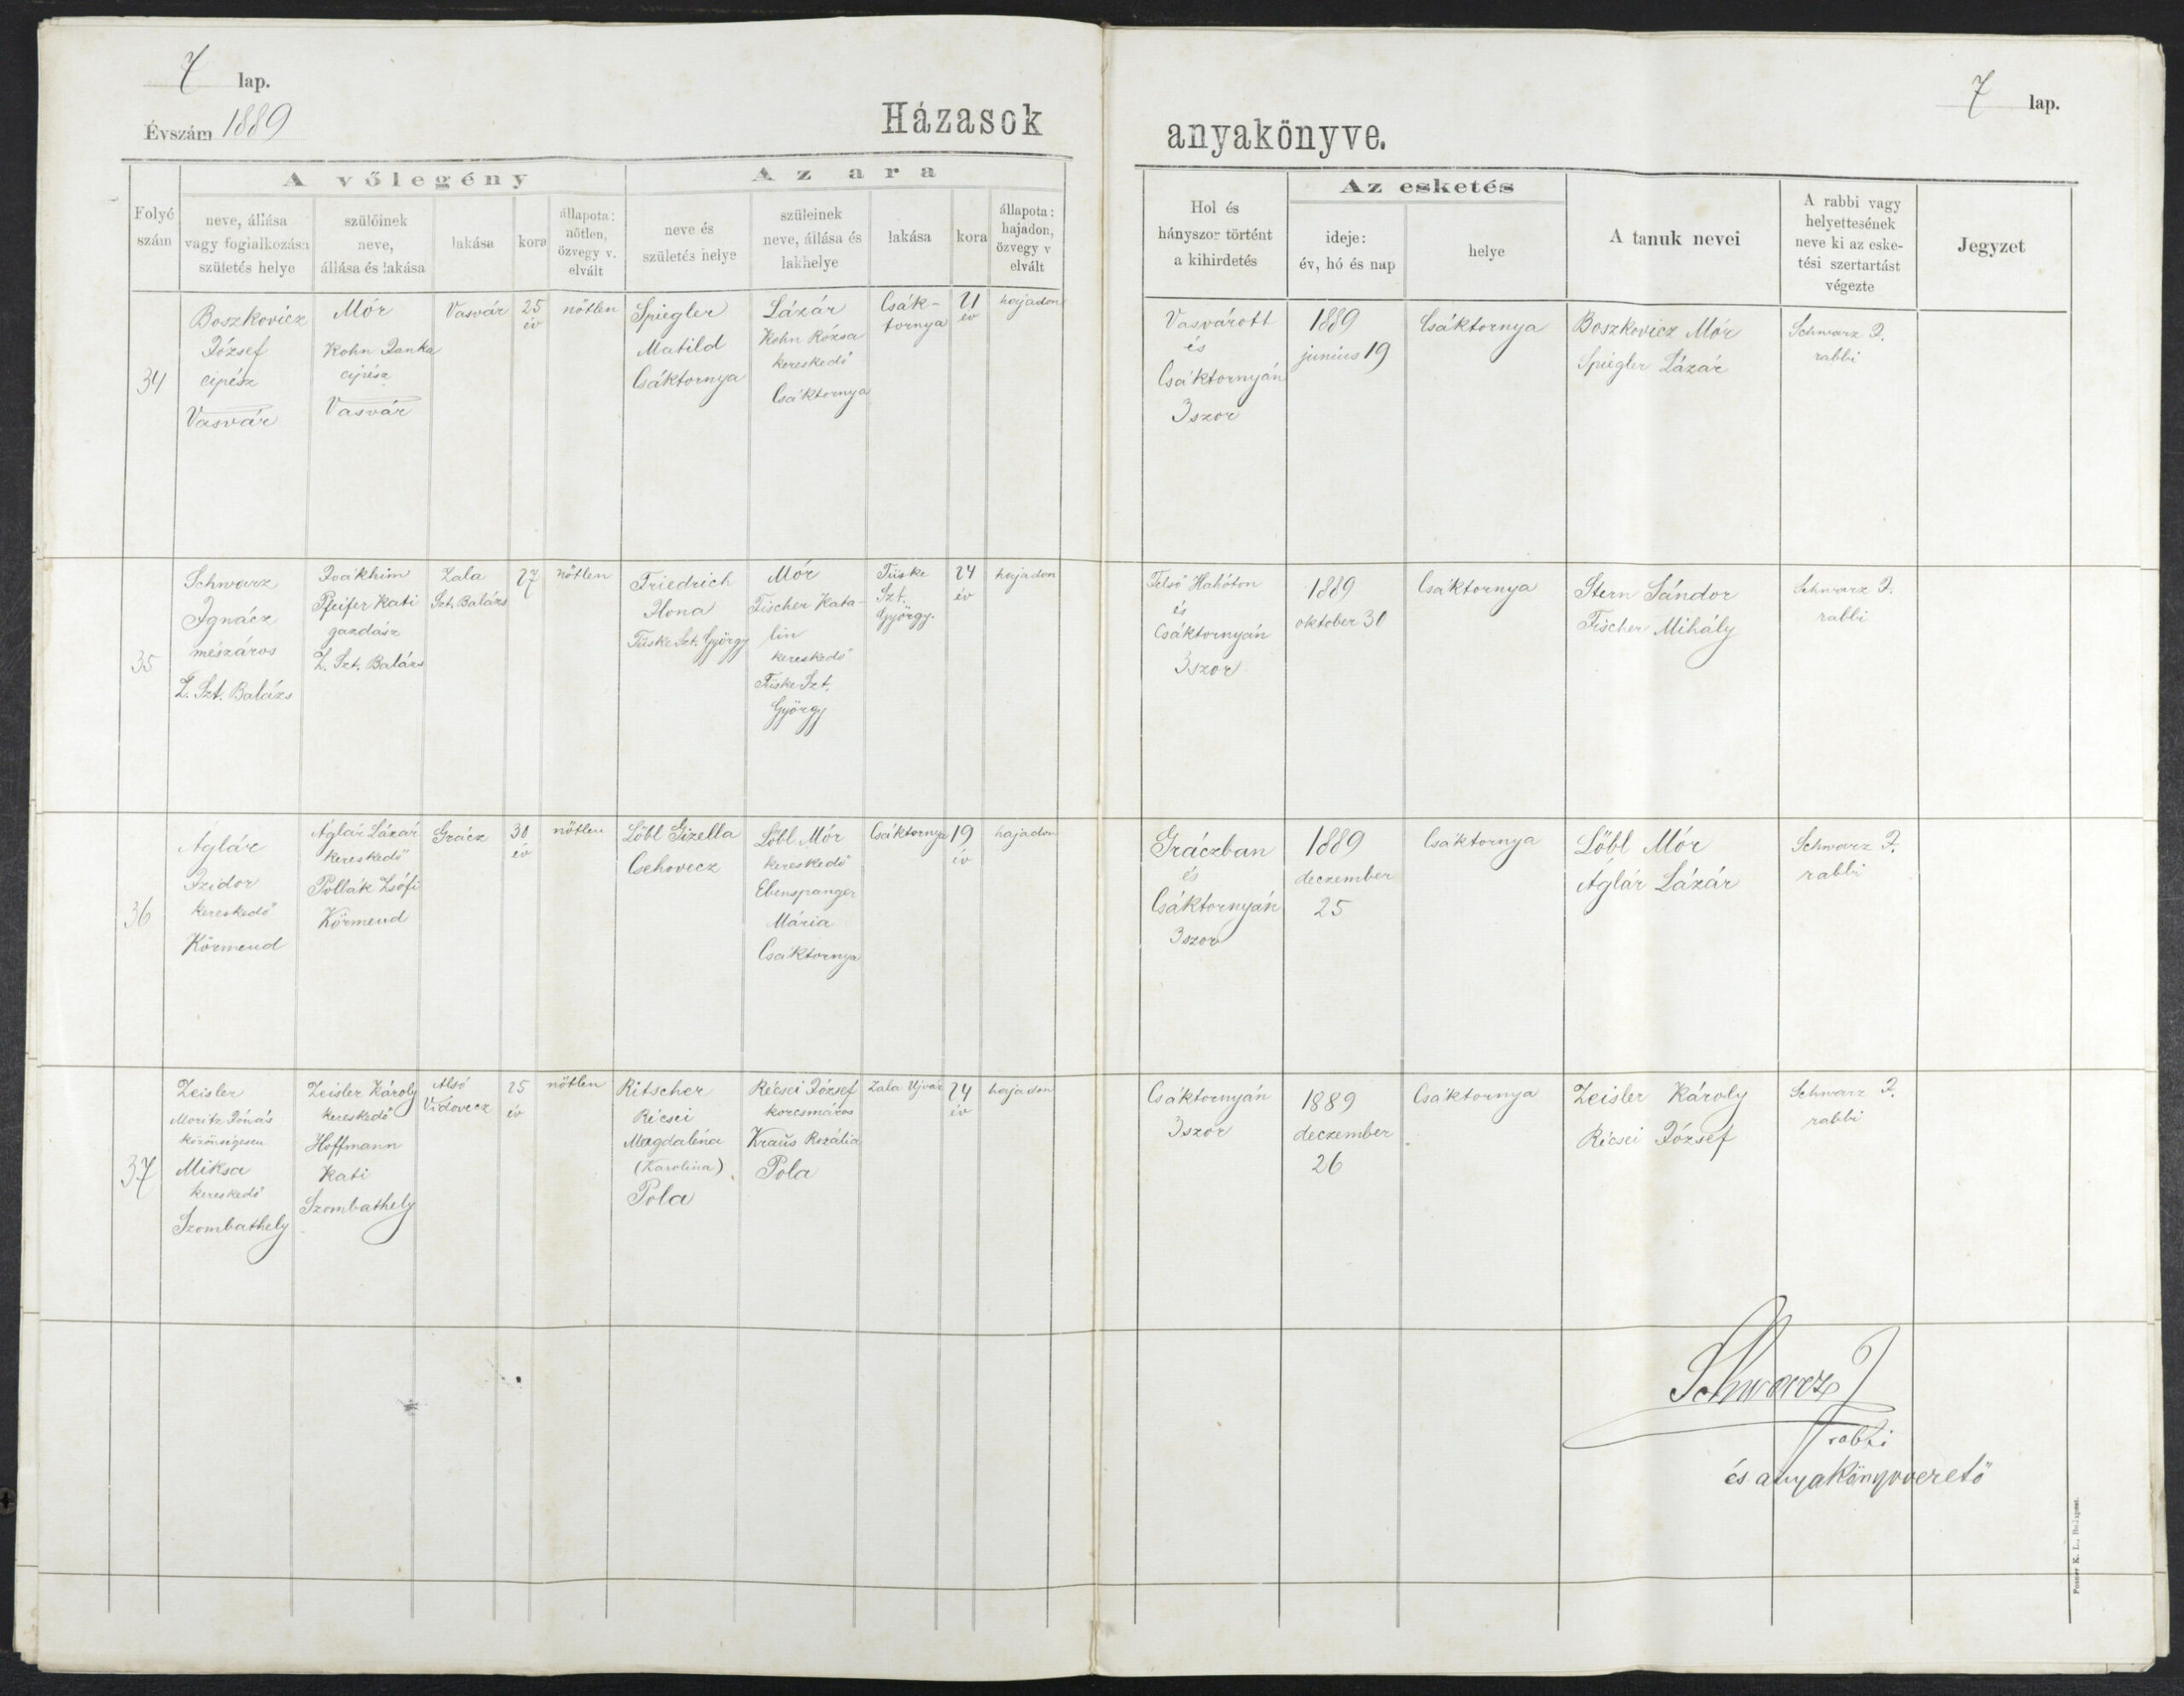 7 lap.
Évszám 1889
Házasok
anyakönyve.
7 lap.
A vőlegény
Az ara
Az esketés
Folyó szám
neve, állása vagy foglalkozása születés helye
szülőinek neve, állása és lakása
lakása
kora
állapota: nőtlen, özvegy v. elvált
neve és születés helye
szüleinek neve, állása és lakhelye
lakása
kora
állapota: hajadon, özvegy v elvált
Hol és hányszor történt a kihirdetés
ideje: év, hó és nap
helye
A tanuk nevei
A rabbi vagy helyettesének neve ki az esketési szertartást végezte
Jegyzet
34
Boszkovicz
József
cipész
Vasvár
Mór
Kohn Janka
cipész
Vasvár
Vasvár
25
év
nőtlen
Spiegler
Matild
Csáktornya
Lázár
Kohn Rózsa
kereskedő
Csáktornya
Csák-
tornya
21
év
hajadon
Vasvárott
és
Csáktornyán
3szor
1889
junius 19
Csáktornya
Boszkovicz Mór
Spiegler Lázár
Schwarz J.
rabbi
35
Schwarz
Ignácz
mészáros
Z. Szt. Balázs
Joákhim
Pfeifer Kati
gazdász
Z. Szt. Balázs
Zala
Szt. Balázs
27
nőtlen
Friedrich
Ilona
Tüske Szt. György
Mór
Fischer Kata-
lin
kereskedő
Tüske Szt.
György
Tüske
Szt.
György.
24
év
hajadon
Felső Hahóton
és
Csáktornyán
3szor
1889
oktober 30
Csáktornya
Stern Sándor
Fischer Mihály
Schwarz J.
rabbi
36
Aglár
Izidor
kereskedő
Körmend
Aglár Lázár
kereskedő
Pollák Zsófi
Körmend
Grácz
30
év
nőtlen
Löbl Gizella
Csehovecz
Löbl Mór
kereskedő
Ebenspanger
Mária
Csáktornya
Csáktornya
19
év
hajadon
Gráczban
és
Csáktornyán
3szor
1889
deczember
25
Csáktornya
Löbl Mór
Aglár Lázár
Schwarz J.
rabbi
37
Zeisler
Moritz Jónás
közönségesen
Miksa
kereskedő
Szombathely
Zeisler Károly
kereskedő
Hoffmann
Kati
Szombathely
Alsó
Vidovecz
25
év
nőtlen
Ritscher
Récsei
Magdaléna
(Karolina)
Pola
Récsei József
korcsmáros
Kraus Rozália
Pola
Zala Ujvár
24
év
hajadon
Csáktornyán
3szor
1889
deczember
26
Csáktornya
Zeisler Károly
Récsei József
Schwarz J.
rabbi
Schwarz J
rabbi
és anyakönyvvezető
Posner K. L., Budapest.